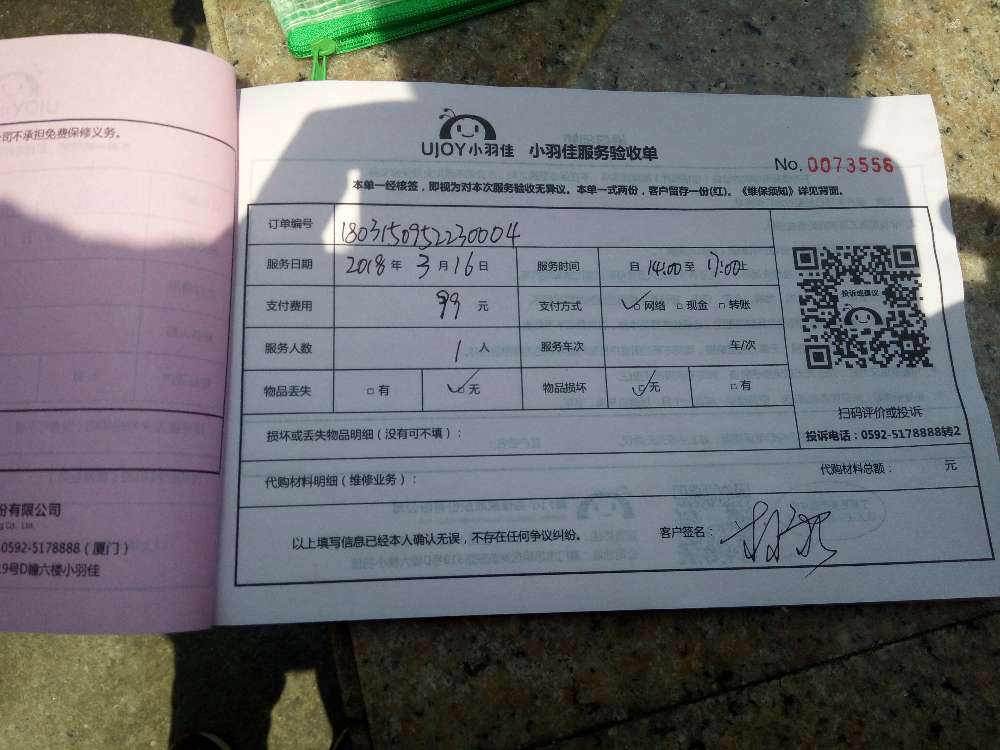 司不承担免费保修义务。
份有限公司
g Co. Ltd.
0592-5178888（厦门）
19号D幢六楼小羽佳
UJOY小羽佳 小羽佳服务验收单
No. 0073556
本单一经核签，即视为对本次服务验收无异议。本单一式两份，客户留存一份(红)。《维保须知》详见背面。
订单编号 1803150952230004
服务日期 2018年3月16日 服务时间 自14:00至17:00止
支付费用 99元 支付方式 ✓□网络 □现金 □转账
服务人数 1人 服务车次 车/次
物品丢失 □有 ✓□无 物品损坏 ✓□无 □有
投诉或建议
扫码评价或投诉
投诉电话：0592-5178888转2
损坏或丢失物品明细（没有可不填）：
代购材料明细（维修业务）： 代购材料总额： 元
以上填写信息已经本人确认无误，不存在任何争议纠纷。 客户签名：